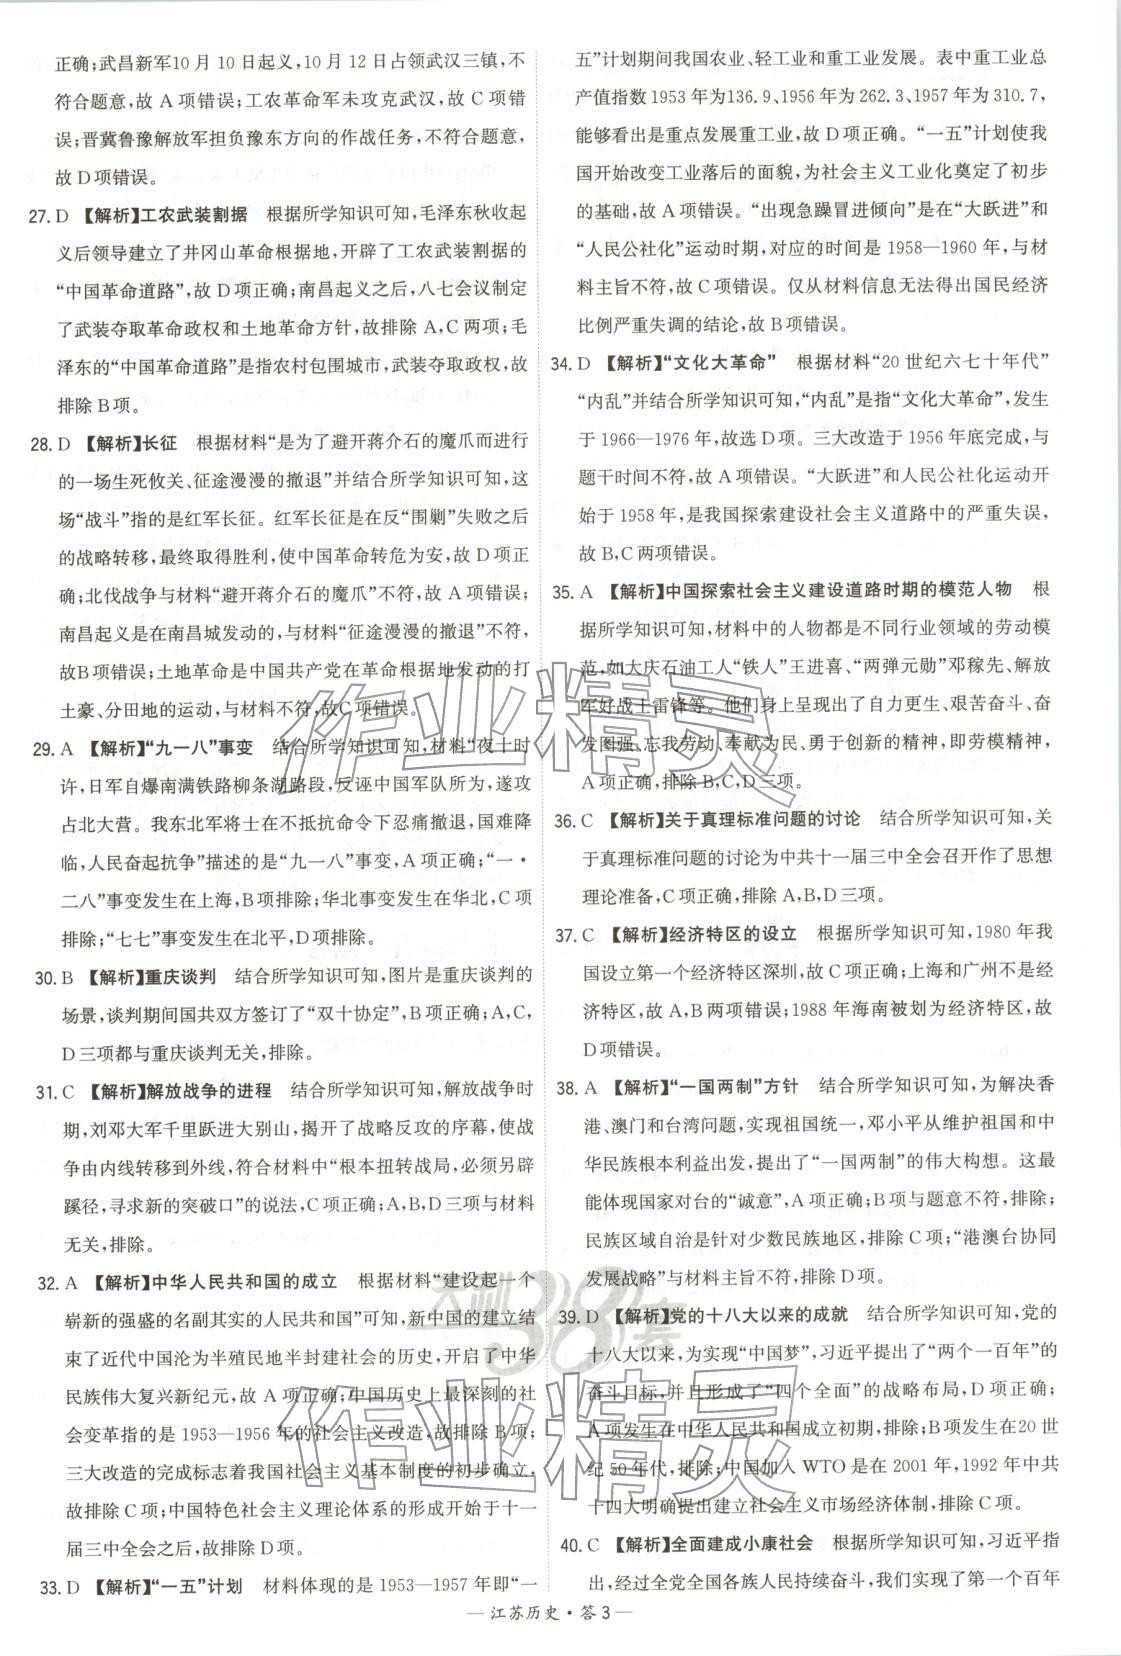 正确;武昌新军10月10日起义,10月12日占领武汉三镇,不
符合题意,故A项错误;工农革命军未攻克武汉,故C项错
误;晋冀鲁豫解放军担负豫东方向的作战任务,不符合题意,
故D项错误。
27. D 【解析】工农武装割据 根据所学知识可知,毛泽东秋收起
义后领导建立了井冈山革命根据地,开辟了工农武装割据的
“中国革命道路”,故D项正确;南昌起义之后,八七会议制定
了武装夺取革命政权和土地革命方针,故排除A,C两项;毛
泽东的“中国革命道路”是指农村包围城市,武装夺取政权,故
排除B项。
28. D 【解析】长征 根据材料“是为了避开蒋介石的魔爪而进行
的一场生死攸关、征途漫漫的撤退”并结合所学知识可知,这
场“战斗”指的是红军长征。红军长征是在反“围剿”失败之后
的战略转移,最终取得胜利,使中国革命转危为安,故D项正
确;北伐战争与材料“避开蒋介石的魔爪”不符,故A项错误;
南昌起义是在南昌城发动的,与材料“征途漫漫的撤退”不符,
故B项错误;土地革命是中国共产党在革命根据地发动的打
土豪、分田地的运动,与材料不符,故C项错误。
29. A 【解析】“九一八”事变 结合所学知识可知,材料“夜十时
许,日军自爆南满铁路柳条湖路段,反诬中国军队所为,遂攻
占北大营。我东北军将士在不抵抗命令下忍痛撤退,国难降
临,人民奋起抗争”描述的是“九一八”事变,A项正确;“一·
二八”事变发生在上海,B项排除;华北事变发生在华北,C项
排除;“七七”事变发生在北平,D项排除。
30. B 【解析】重庆谈判 结合所学知识可知,图片是重庆谈判的
场景,谈判期间国共双方签订了“双十协定”,B项正确;A,C,
D三项都与重庆谈判无关,排除。
31. C 【解析】解放战争的进程 结合所学知识可知,解放战争时
期,刘邓大军千里跃进大别山,揭开了战略反攻的序幕,使战
争由内线转移到外线,符合材料中“根本扭转战局,必须另辟
蹊径,寻求新的突破口”的说法,C项正确;A,B,D三项与材料
无关,排除。
32. A 【解析】中华人民共和国的成立 根据材料“建设起一个
崭新的强盛的名副其实的人民共和国”可知,新中国的建立结
束了近代中国沦为半殖民地半封建社会的历史,开启了中华
民族伟大复兴新纪元,故A项正确;中国历史上最深刻的社
会变革指的是1953—1956年的社会主义改造,故排除B项;
三大改造的完成标志着我国社会主义基本制度的初步确立,
故排除C项;中国特色社会主义理论体系的形成开始于十一
届三中全会之后,故排除D项。
33. D 【解析】“一五”计划 材料体现的是1953—1957年即“一
五”计划期间我国农业、轻工业和重工业发展。表中重工业总
产值指数1953年为136.9,1956年为262.3,1957年为310.7,
能够看出是重点发展重工业,故D项正确。“一五”计划使我
国开始改变工业落后的面貌,为社会主义工业化奠定了初步
的基础,故A项错误。“出现急躁冒进倾向”是在“大跃进”和
“人民公社化”运动时期,对应的时间是1958—1960年,与材
料主旨不符,故C项错误。仅从材料信息无法得出国民经济
比例严重失调的结论,故B项错误。
34. D 【解析】“文化大革命” 根据材料“20世纪六七十年代”
“内乱”并结合所学知识可知,“内乱”是指“文化大革命”,发生
于1966—1976年,故选D项。三大改造于1956年底完成,与
题干时间不符,故A项错误。“大跃进”和人民公社化运动开
始于1958年,是我国探索建设社会主义道路中的严重失误,
故B,C两项错误。
35. A 【解析】中国探索社会主义建设道路时期的模范人物 根
据所学知识可知,材料中的人物都是不同行业领域的劳动模
范,如大庆石油工人“铁人”王进喜、“两弹元勋”邓稼先、解放
军好战士雷锋等。他们身上呈现出了自力更生、艰苦奋斗、奋
发图强、忘我劳动、奉献为民、勇于创新的精神,即劳模精神,
A项正确,排除B,C,D三项。
36. C 【解析】关于真理标准问题的讨论 结合所学知识可知,关
于真理标准问题的讨论为中共十一届三中全会召开作了思想
理论准备,C项正确,排除A,B,D三项。
37. C 【解析】经济特区的设立 根据所学知识可知,1980年我
国设立第一个经济特区深圳,故C项正确;上海和广州不是经
济特区,故A,B两项错误;1988年海南被划为经济特区,故
D项错误。
38. A 【解析】“一国两制”方针 结合所学知识可知,为解决香
港、澳门和台湾问题,实现祖国统一,邓小平从维护祖国和中
华民族根本利益出发,提出了“一国两制”的伟大构想。这最
能体现国家对台的“诚意”,A项正确;B项与题意不符,排除;
民族区域自治是针对少数民族地区,排除C项;“港澳台协同
发展战略”与材料主旨不符,排除D项。
39. D 【解析】党的十八大以来的成就 结合所学知识可知,党的
十八大以来,为实现“中国梦”,习近平提出了“两个一百年”的
奋斗目标,并且形成了“四个全面”的战略布局,D项正确;
A项发生在中华人民共和国成立初期,排除;B项发生在20世
纪50年代,排除;中国加入WTO是在2001年,1992年中共
十四大明确提出建立社会主义市场经济体制,排除C项。
40. C 【解析】全面建成小康社会 根据所学知识可知,习近平指
出,经过全党全国各族人民持续奋斗,我们实现了第一个百年
— 江苏历史·答3 —
作业精灵
天利38套
作业精灵